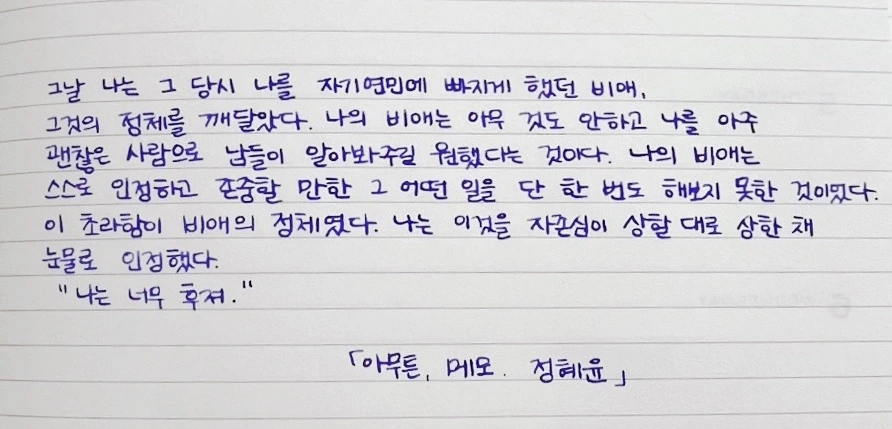 그날 나는 그 당시 나를 자기연민에 빠지게 했던 비애,
그것의 정체를 깨달았다. 나의 비애는 아무 것도 안하고 나를 아주
괜찮은 사람으로 남들이 알아봐주길 원했다는 것이다. 나의 비애는
스스로 인정하고 존중할 만한 그 어떤 일을 단 한 번도 해보지 못한 것이었다.
이 초라함이 비애의 정체였다. 나는 이것을 자존심이 상할 대로 상한 채
눈물로 인정했다.
"나는 너무 후져."
「아무튼, 메모. 정혜윤」